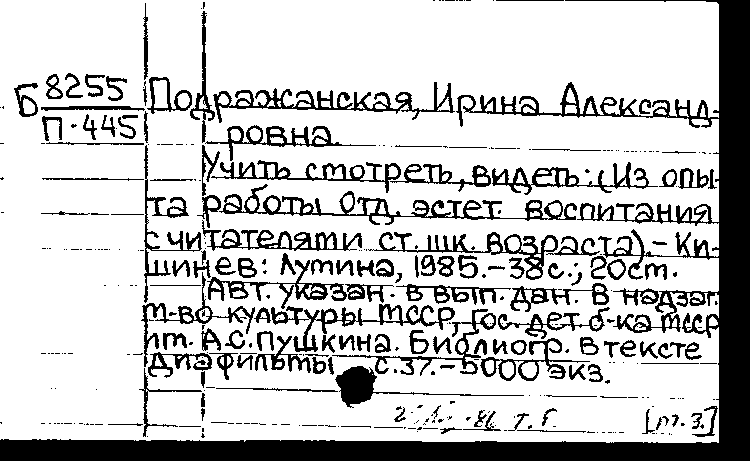 Б 8255
П-445
Подражанская, Ирина Александ-
ровна.
Учить смотреть, видеть: (Из опы-
та работы Отд. эстет. воспитания
с читателями ст. шк. возраста). - Ки-
шинев: Лумина, 1985. - 38 с.; 20 см.
Авт. указан. в вып. дан. В надзаг.
М-во культуры МССР, Гос. дет. б-ка МССР
им. А.С. Пушкина. Библиогр. в тексте
Диафильмы с. 37. - 5000 экз.
86 Т. Г. [м. 3.]